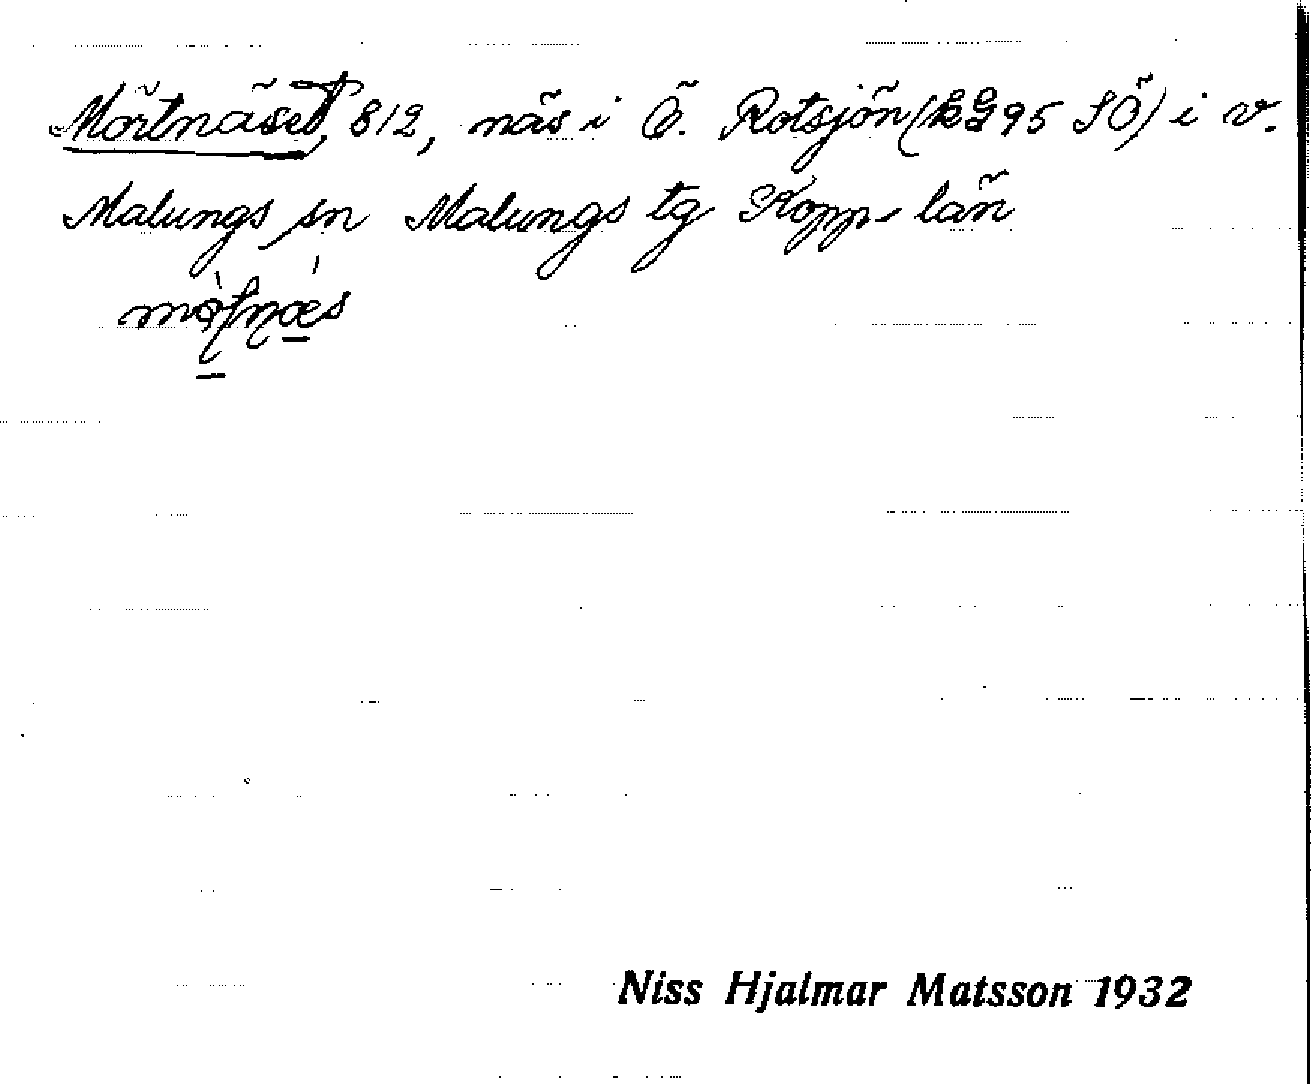 Mörtnäset, 812, näs i Ö. Rotsjön (kG 95 SÖ) i v.
Malungs sn Malungs tg Kopp. län
Niss Hjalmar Matsson 1932